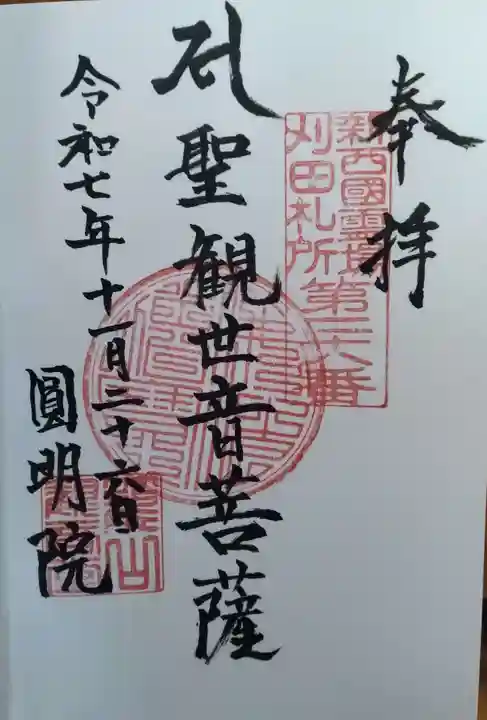 奉拝
新西國霊場
刈田札所第
聖観世音菩薩
令和七年十一月二十六日
圓明院